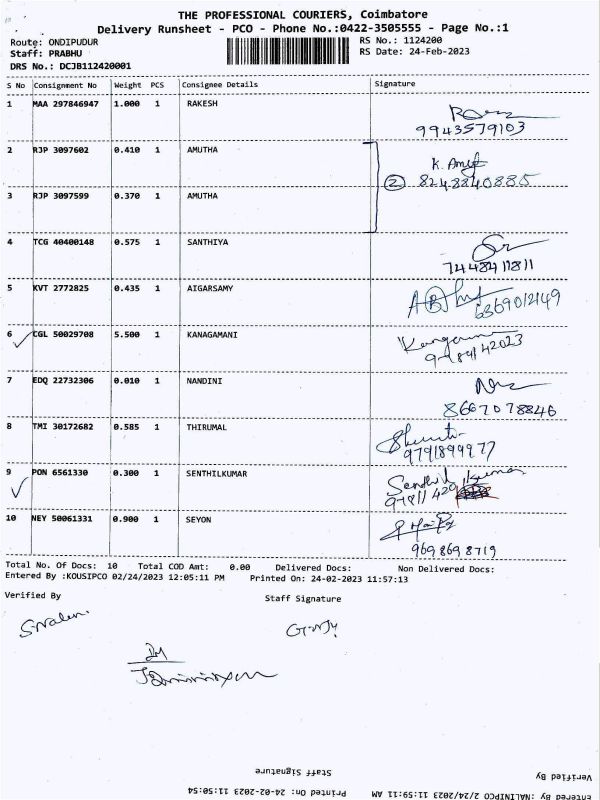 THE PROFESSIONAL COURIERS, Coimbatore
Delivery Runsheet - PCO - Phone No.:0422-3505555 - Page No.:1
Route: ONDIPUDUR
RS No.: 1124200
Staff: PRABHU
RS Date: 24-Feb-2023
DRS No.: DCJB112420001
S No Consignment No Weight PCS Consignee Details Signature
1 MAA 297846947 1.000 1 RAKESH
9943579103
2 RJP 3097602 0.410 1 AMUTHA
② 8248840885
3 RJP 3097599 0.370 1 AMUTHA
4 TCG 40400148 0.575 1 SANTHIYA
7448411811
5 KVT 2772825 0.435 1 AIGARSAMY
6369012149
6 CGL 50029708 5.500 1 KANAGAMANI
7 EDQ 22732306 0.010 1 NANDINI
8667078846
8 TMI 30172682 0.585 1 THIRUMAL
9791899977
9 PON 6561330 0.300 1 SENTHILKUMAR
Senthil Kumar
10 NEY 50061331 0.900 1 SEYON
9698698719
Total No. Of Docs: 10 Total COD Amt: 0.00 Delivered Docs: Non Delivered Docs:
Entered By :KOUSIPCO 02/24/2023 12:05:11 PM Printed On: 24-02-2023 11:57:13
Verified By Staff Signature
Staff Signature
Verified By
Entered By :NALINIPCO 2/24/2023 11:59:11 AM Printed On: 24-02-2023 11:50:54